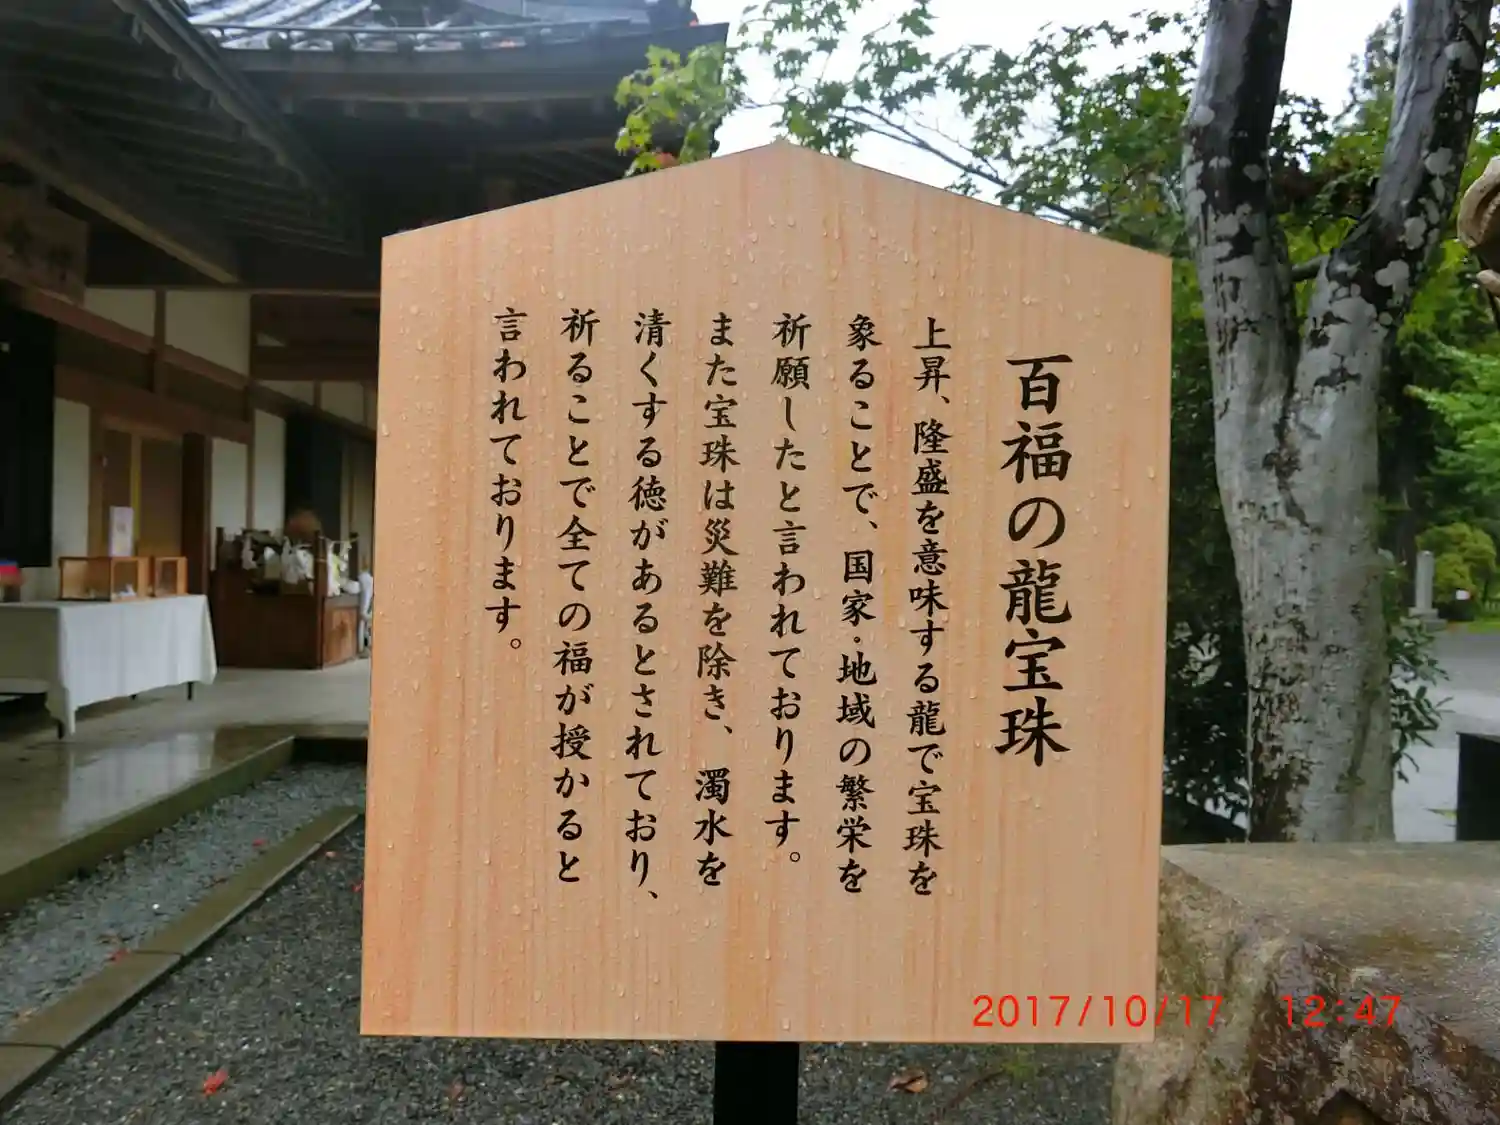 百福の龍宝珠
上昇、隆盛を意味する龍で宝珠を
象ることで、国家・地域の繁栄を
祈願したと言われております。
また宝珠は災難を除き、濁水を
清くする徳があるとされており、
祈ることで全ての福が授かると
言われております。
2017/10/17 12:47